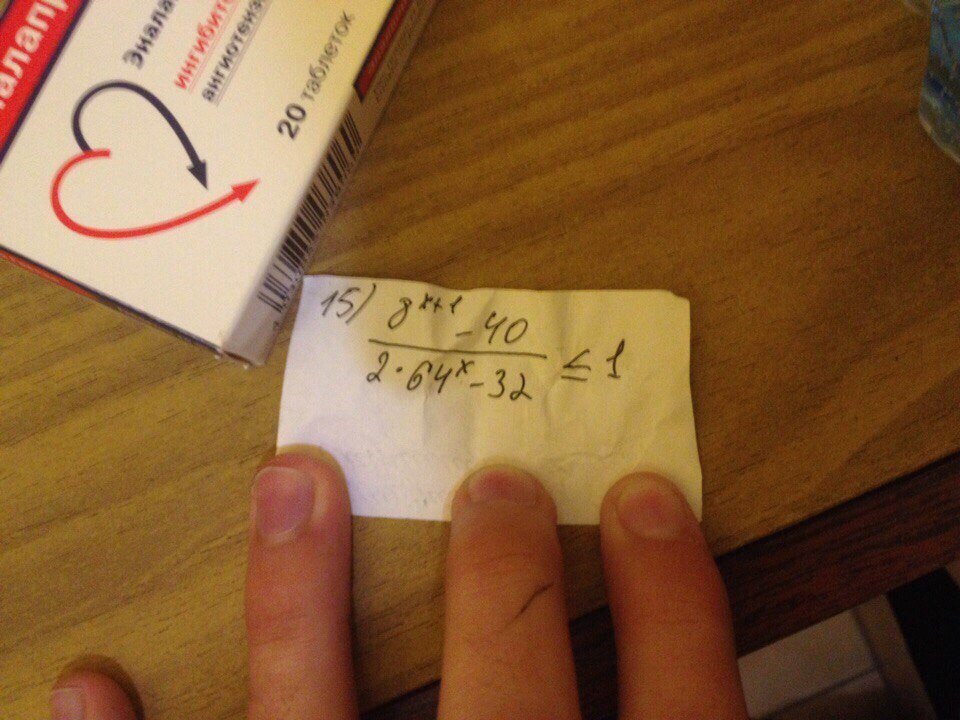 Энала
ингибит
ангиотенз
20 таблеток
15) 8^{x+1} - 40
2·64^x - 32
≤ 1